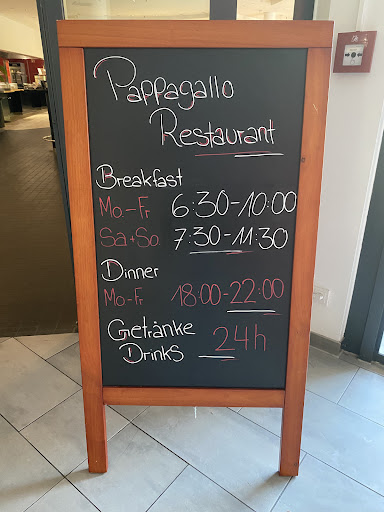 Pappagallo
Restaurant
Breakfast
Mo.-Fr 6:30-10:00
Sa+So. 7:30-11:30
Dinner
Mo-Fr 18:00-22:00
Getränke
Drinks 24h